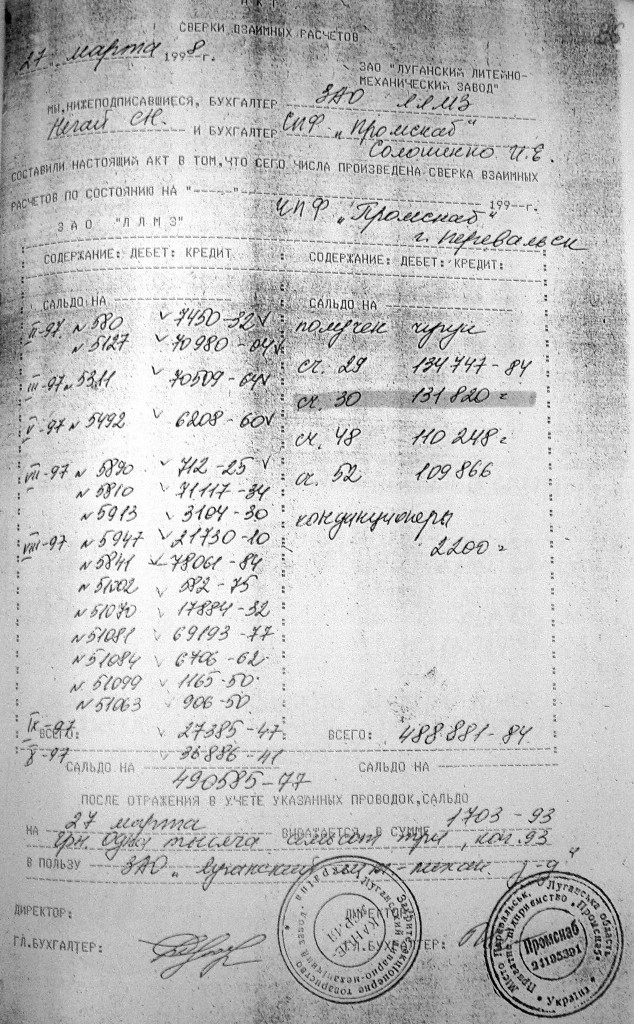 АКТ
СВЕРКИ ВЗАИМНЫХ РАСЧЕТОВ
27 марта 1998-г.
ЗАО "ЛУГАНСКИЙ ЛИТЕЙНО-
МЕХАНИЧЕСКИЙ ЗАВОД"
МЫ, НИЖЕПОДПИСАВШИЕСЯ, БУХГАЛТЕР ЗАО ЛЛМЗ
Негай С.Н. И БУХГАЛТЕР ЧПФ „Промснаб"
Солошенко И.Е.
СОСТАВИЛИ НАСТОЯЩИЙ АКТ В ТОМ, ЧТО СЕГО ЧИСЛА ПРОИЗВЕДЕНА СВЕРКА ВЗАИМНЫХ
РАСЧЕТОВ ПО СОСТОЯНИЮ НА "-----" 199--г.
ЗАО "ЛЛМЗ" ЧПФ „Промснаб"
г. Перевальск
СОДЕРЖАНИЕ: ДЕБЕТ: КРЕДИТ СОДЕРЖАНИЕ: ДЕБЕТ: КРЕДИТ:
САЛЬДО НА САЛЬДО НА
II-97. N 580 7450-32 получен чугун
N 5127 70980-04 сч. 29 134747-84
III-97 N 5311 70509-64 сч. 30 131820=
V-97 N 5492 6208-60 сч. 48 110248=
VII-97 N 5890 712-25 сч. 52 109866
N 5810 71117-34
N 5913 3104-30 кондиционеры
VIII-97 N 5947 21730-20 2200=
N 5841 78061-84
N 51002 582-75
N 51070 17884-32
N 51081 69193-77
N 51084 6706-62
N 51099 1165-50
N 51063 906-50
IX-97 ВСЕГО: 27385-47 ВСЕГО: 488.881-84
X-97 36886-41
САЛЬДО НА 490585-77 САЛЬДО НА
ПОСЛЕ ОТРАЖЕНИЯ В УЧЕТЕ УКАЗАННЫХ ПРОВОДОК, САЛЬДО
НА 27 марта ВЫРАЖАЕТСЯ, В СУММЕ 1703-93
грн. Одна тысяча семьсот три, коп. 93
В ПОЛЬЗУ ЗАО „Луганский лит-механ. з-д"
ДИРЕКТОР: ДИРЕКТОР:
ГЛ.БУХГАЛТЕР: ГЛ.БУХГАЛТЕР:
Закрите акціонерне товариство
Луганський ливарно-механічний завод
України
Луганська область
Місто Перевальськ
Приватне підприємство
Промснаб
24195391
Україна